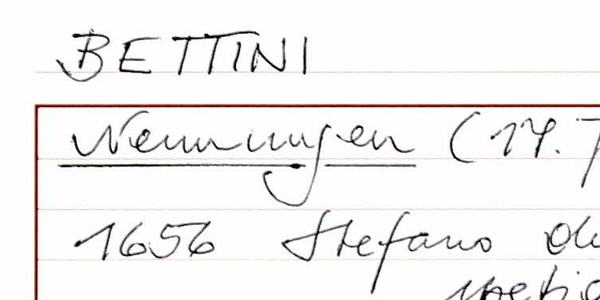 BETTINI
Nennungen (17.
1656 Stefano